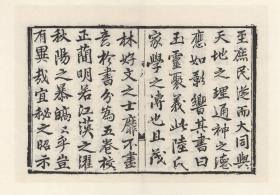 至庶民從而大同與
天地之理通神之德
應如影響其書曰
玉靈聚義此陸氏
家學之傳也且茂
林好文之士靡不盡
於書分為五卷校
正簡明若江漢之濯
秋陽之暴暠〻乎豈
有異哉宜秘之昭示